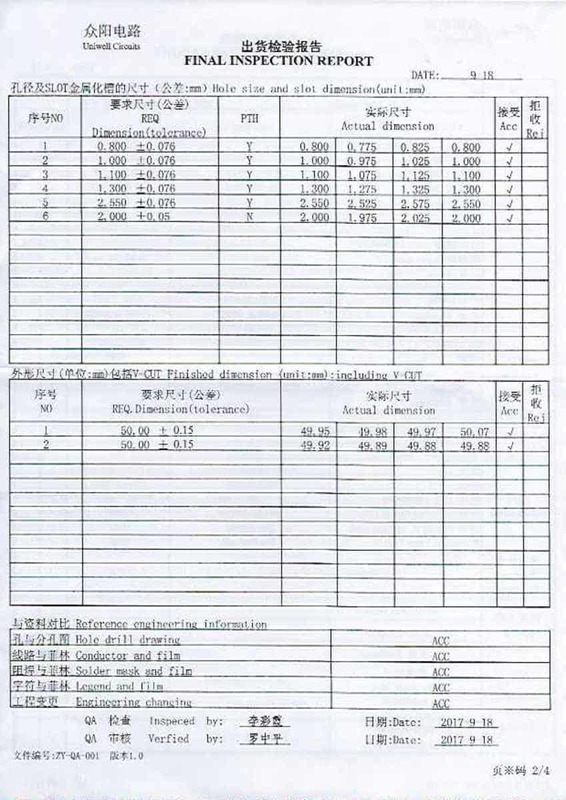 众阳电路
Uniwell Circuits
出货检验报告
FINAL INSPECTION REPORT
DATE: 9 18
孔径及SLOT金属化槽的尺寸（公差:mm）Hole size and slot dimension(unit:mm)
序号NO 要求尺寸(公差) REQ Dimension(tolerance) PTH 实际尺寸 Actual dimension 接受 Acc 拒收 Rej
1 0.800 ±0.076 Y 0.800 0.775 0.825 0.800 √
2 1.000 ±0.076 Y 1.000 0.975 1.025 1.000 √
3 1.100 ±0.076 Y 1.100 1.075 1.125 1.100 √
4 1.300 ±0.076 Y 1.300 1.275 1.325 1.300 √
5 2.550 ±0.076 Y 2.550 2.525 2.575 2.550 √
6 2.000 ±0.05 N 2.000 1.975 2.025 2.000 √
外形尺寸(单位:mm)包括V-CUT Finished dimension (unit:mm):including V-CUT
序号 NO 要求尺寸(公差) REQ.Dimension(tolerance) 实际尺寸 Actual dimension 接受 Acc 拒收 Rej
1 50.00 ± 0.15 49.95 49.98 49.97 50.07 √
2 50.00 ± 0.15 49.92 49.89 49.88 49.88 √
与资料对比 Reference engineering information
孔与分孔图 Hole drill drawing ACC
线路与菲林 Conductor and film ACC
阻焊与菲林 Solder mask and film ACC
字符与菲林 Legend and film ACC
工程变更 Engineering changing ACC
QA 检查 Inspeced by: 李彩霞 日期:Date: 2017 9 18
QA 审核 Verfied by: 罗中平 日期:Date: 2017 9 18
文件编号:ZY-QA-001 版本1.0
页※码 2/4